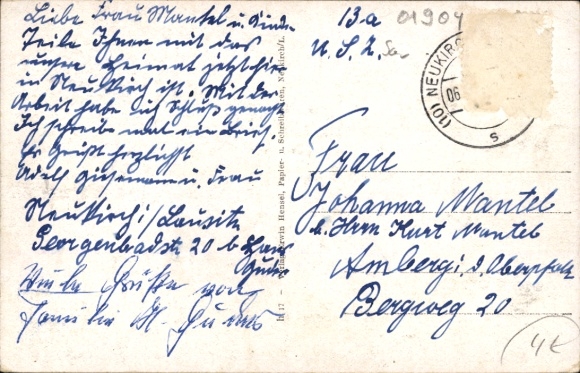 Liebe Frau Mantel u. Kinder
Teile Ihnen mit das
unsere Heimat jetzt hier
in Neukirch ist. Mit der
Arbeit habe ich Schluß gemacht
Ich schreibe mal ein Brief.
Es grüßt herzlichst
Adolf u. Frau
Neukirch/Lausitz
Georgenbadstr. 20 b.
Viele Grüße von
Familie
13a
01904
U. S. Z.
(10) NEUKIRCH
06
s
Hensel, Papier- u. Schreibwaren, Neukirch/L.
Frau
Johanna Mantel
b. Herrn Kurt Mantel
Amberg i. d. Oberpfalz
Bergweg 20